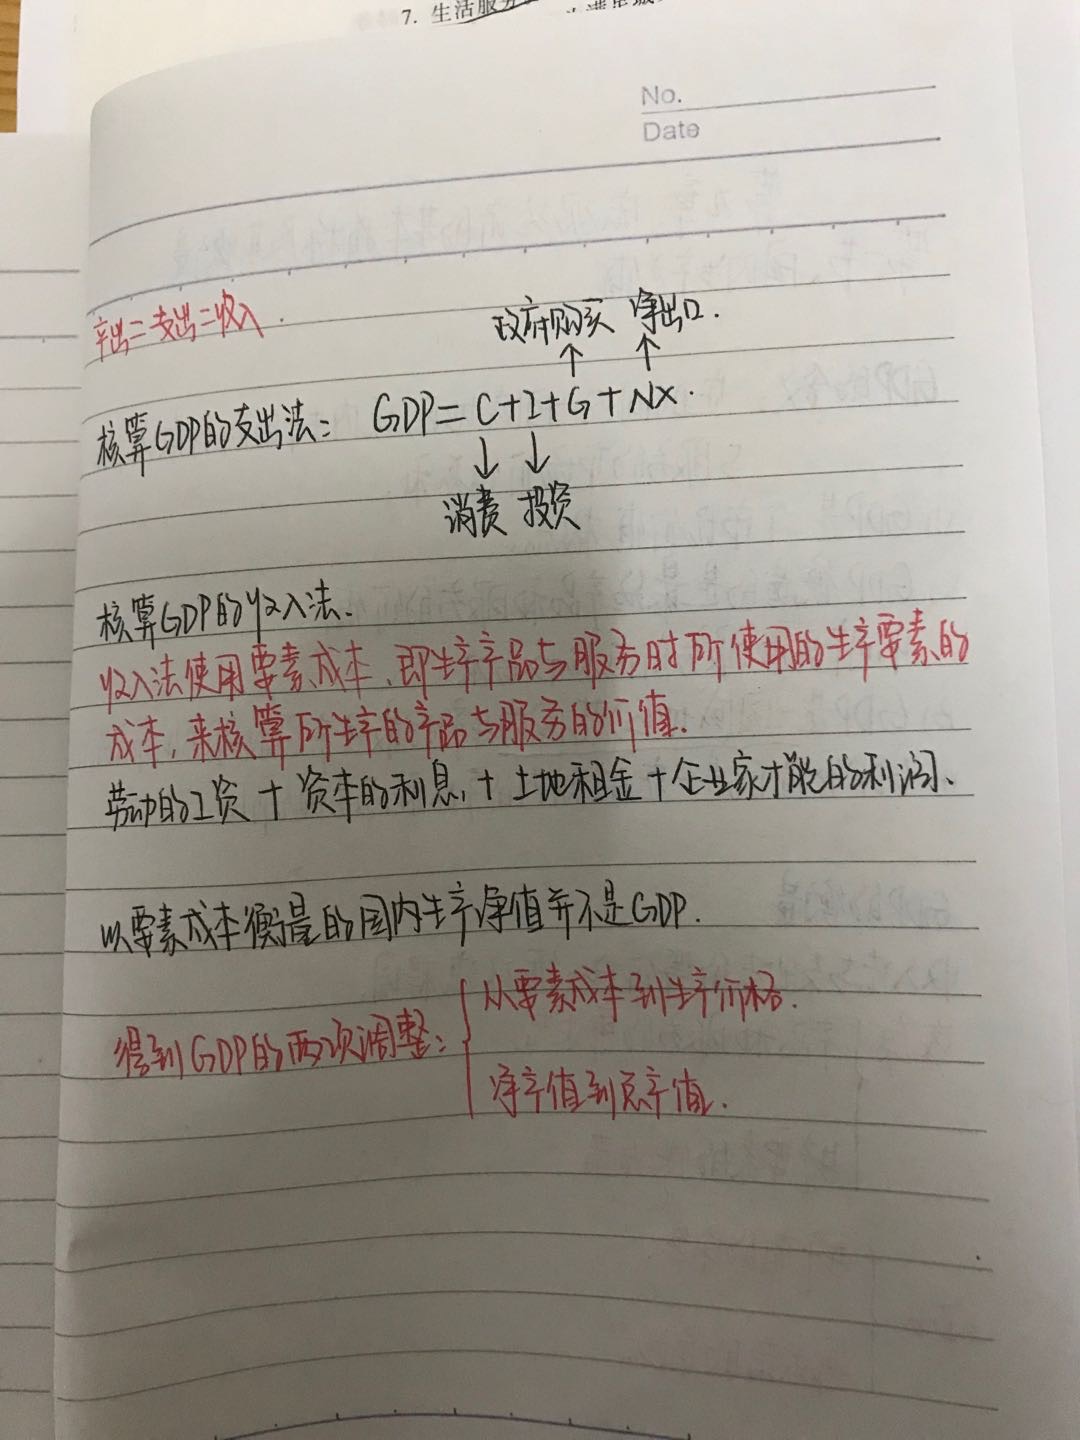 7. 生活服务
No.
Date
产出=支出=收入.
政府购买 净出口.
↑ ↑
核算GDP的支出法: GDP=C+I+G+NX.
↓ ↓
消费 投资
核算GDP的收入法.
收入法使用要素成本,即生产产品与服务时所使用的生产要素的
成本,来核算所生产的产品与服务的价值.
劳动的工资+资本的利息+土地租金+企业家才能的利润.
以要素成本衡量的国内生产净值并不是GDP.
从要素成本到生产价格.
得到GDP的两项调整:
净产值到总产值.